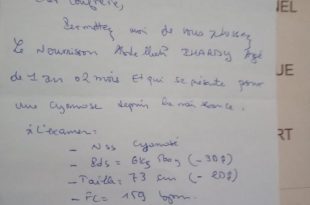 Permettez moi de vous adresser
Le Nourrisson
de 1 an 02 mois et qui se présente pour
une cyanose depuis la naissance.
à l'examen :
- Nss cyanosé
- Pds = 6kg 500g (-3DS)
- Taille = 73 cm (-2DS)
- FC = 159 bpm.
NEL
QUE
RT